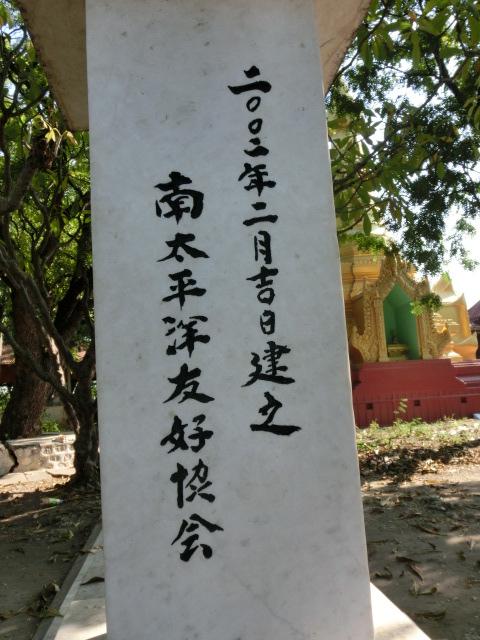 二〇〇二年二月吉日建立
南太平洋友好協会